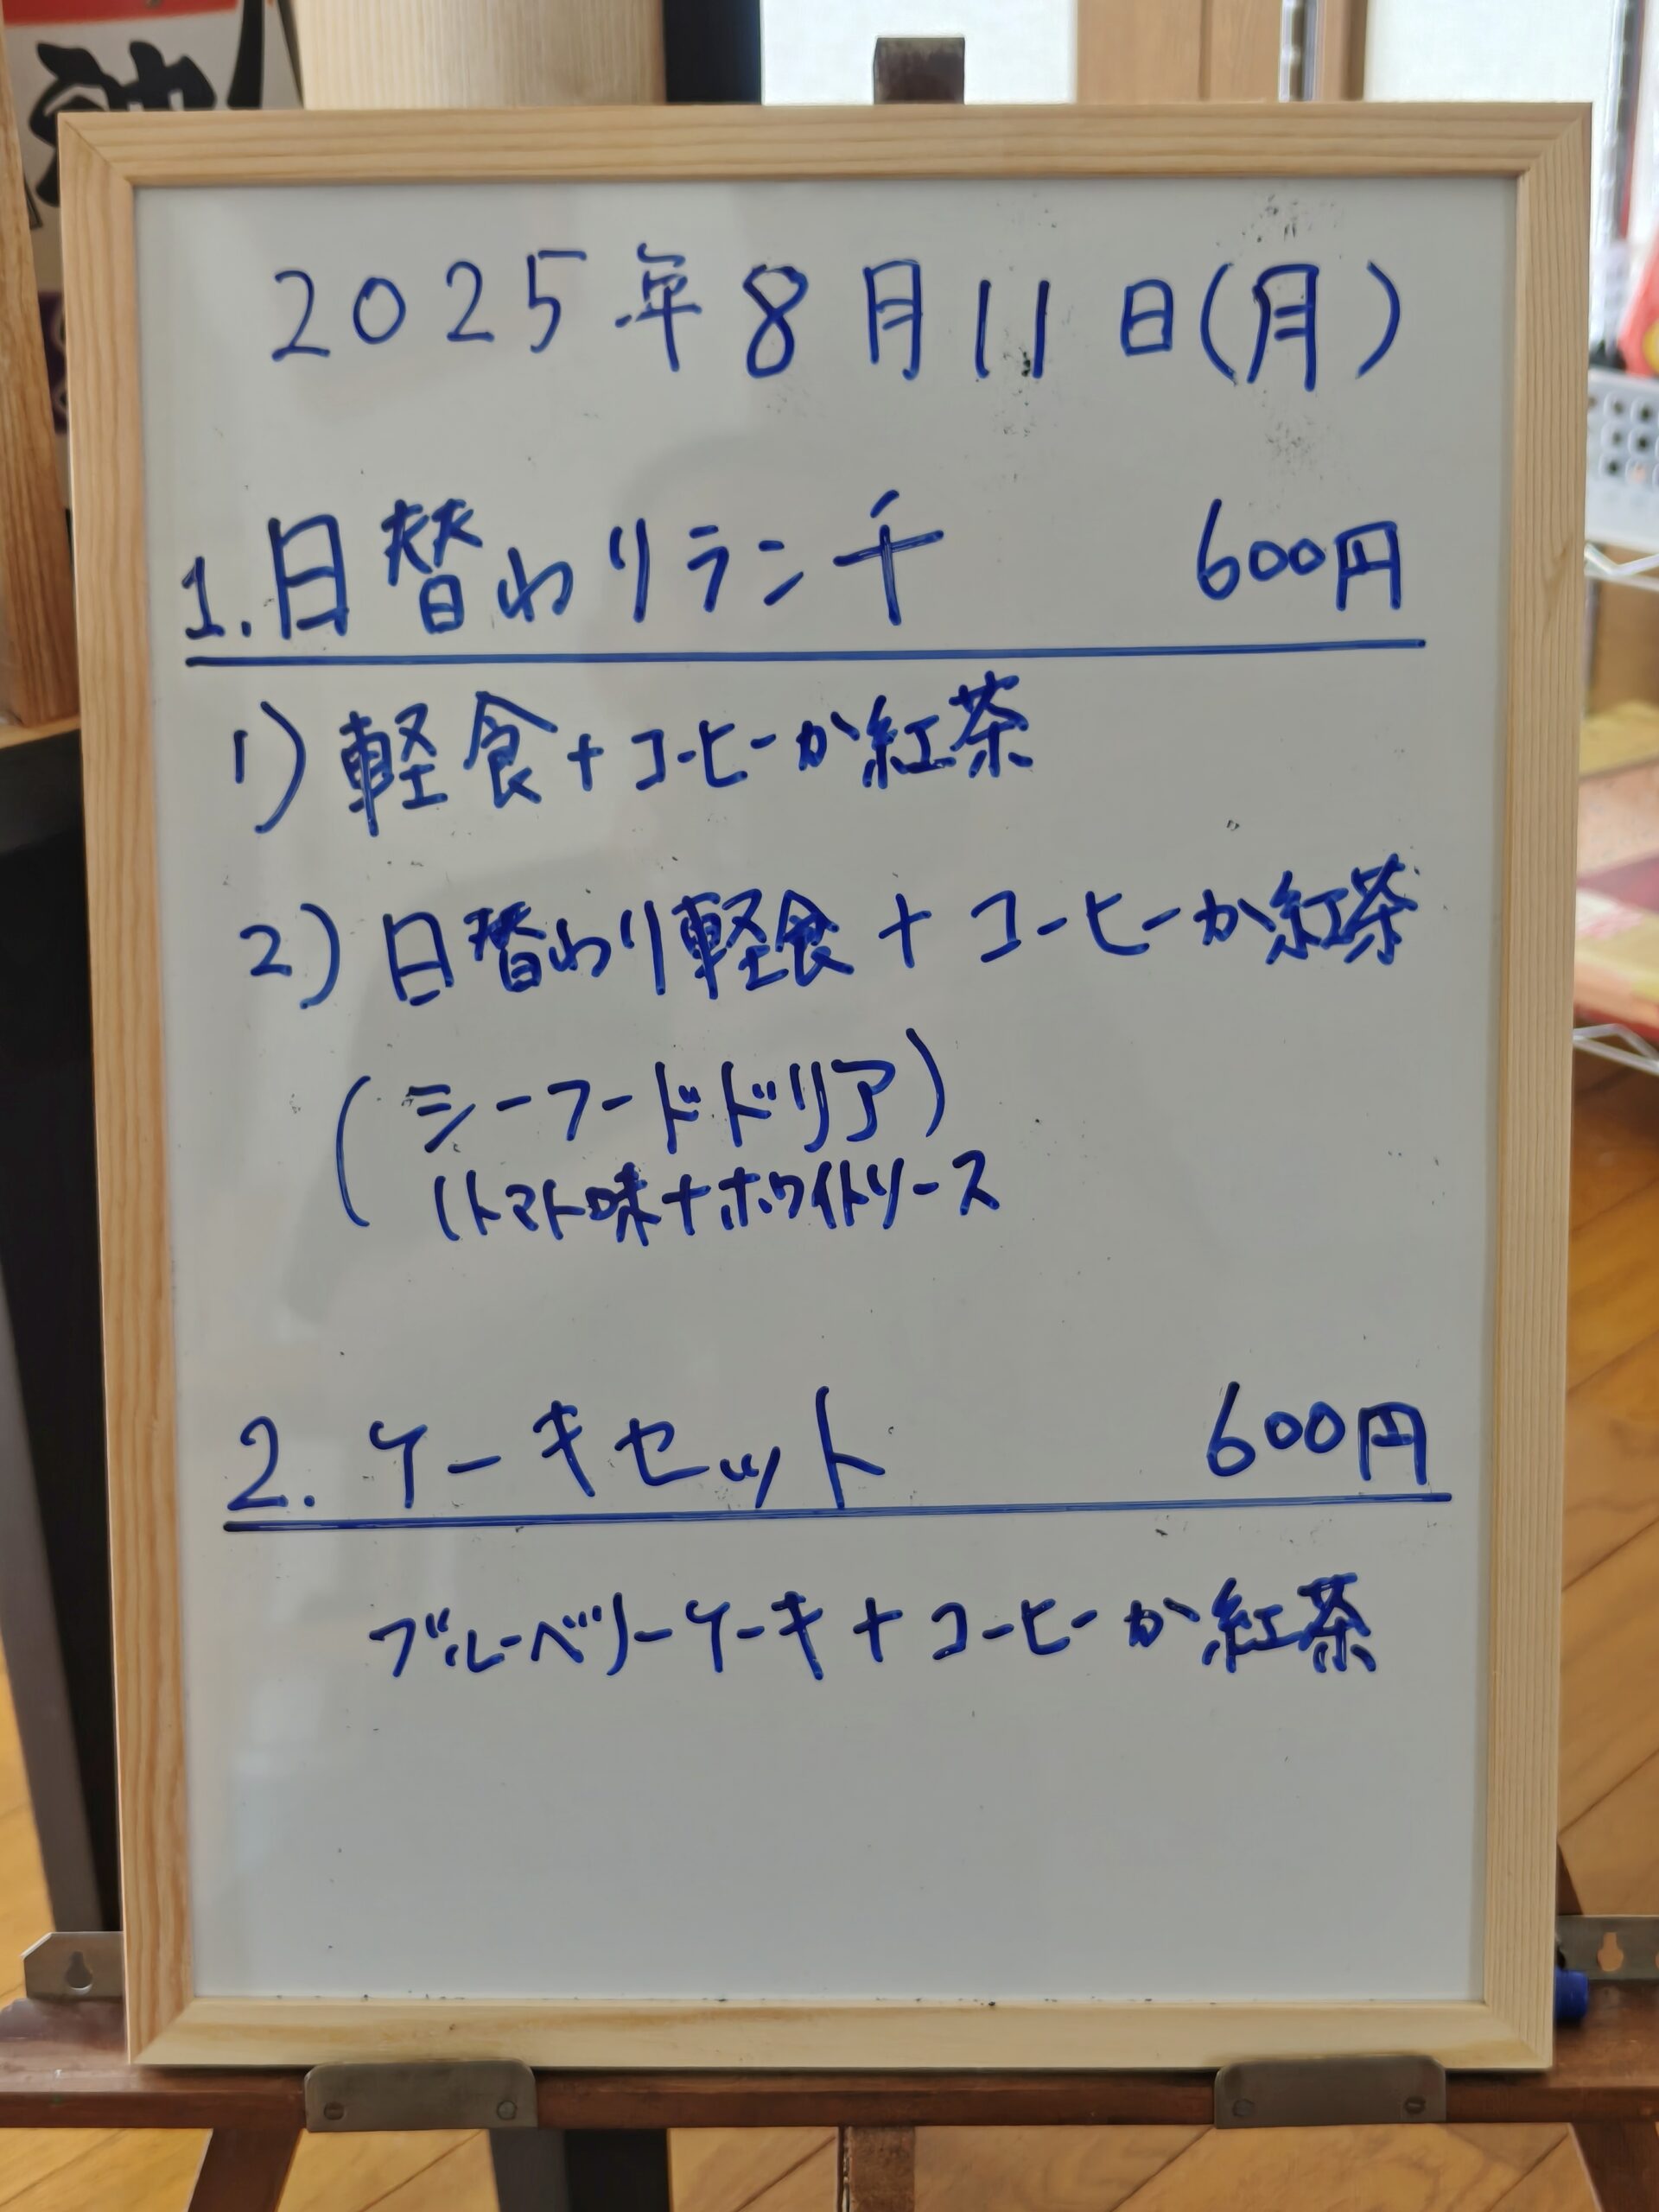 2025年8月11日(月)
1.日替わりランチ 600円
1) 軽食+コーヒーか紅茶
2) 日替わり軽食+コーヒーか紅茶
(シーフードドリア)
(トマト味+ホワイトソース
2. ケーキセット 600円
ブルーベリーケーキ+コーヒーか紅茶